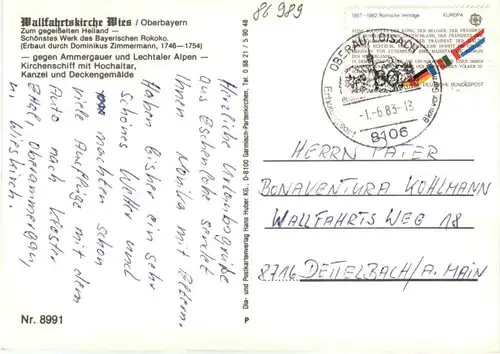 86 989
Wallfahrtskirche Wies / Oberbayern
Zum gegeißelten Heiland —
Schönstes Werk des Bayerischen Rokoko.
(Erbaut durch Dominikus Zimmermann, 1746—1754)
— gegen Ammergauer und Lechtaler Alpen —
Kirchenschiff mit Hochaltar,
Kanzel und Deckengemälde
Herzliche Urlaubsgrüße
aus Eschenlohe sendet
Ihnen Monika mit Eltern.
Haben bisher ein sehr
schönes Wetter und
machten schon
viele Ausflüge mit dem
Auto nach Kloster
Ettal, Oberammergau,
u. Wieskirch.
Nr. 8991
Dia- und Postkartenverlag Hans Huber KG., D-8100 Garmisch-Partenkirchen, Tel. 0 88 21 / 5 90 48
P
1957-1982 Römische Verträge
EUROPA
80
DEUTSCHE BUNDESPOST
OBERAU, LOISACH
-1.-6.83-18
8106
HERRN PATER
BONAVENTURA KOHLMANN
WALLFAHRTS WEG 18
8716 DETTELBACH/A. MAIN